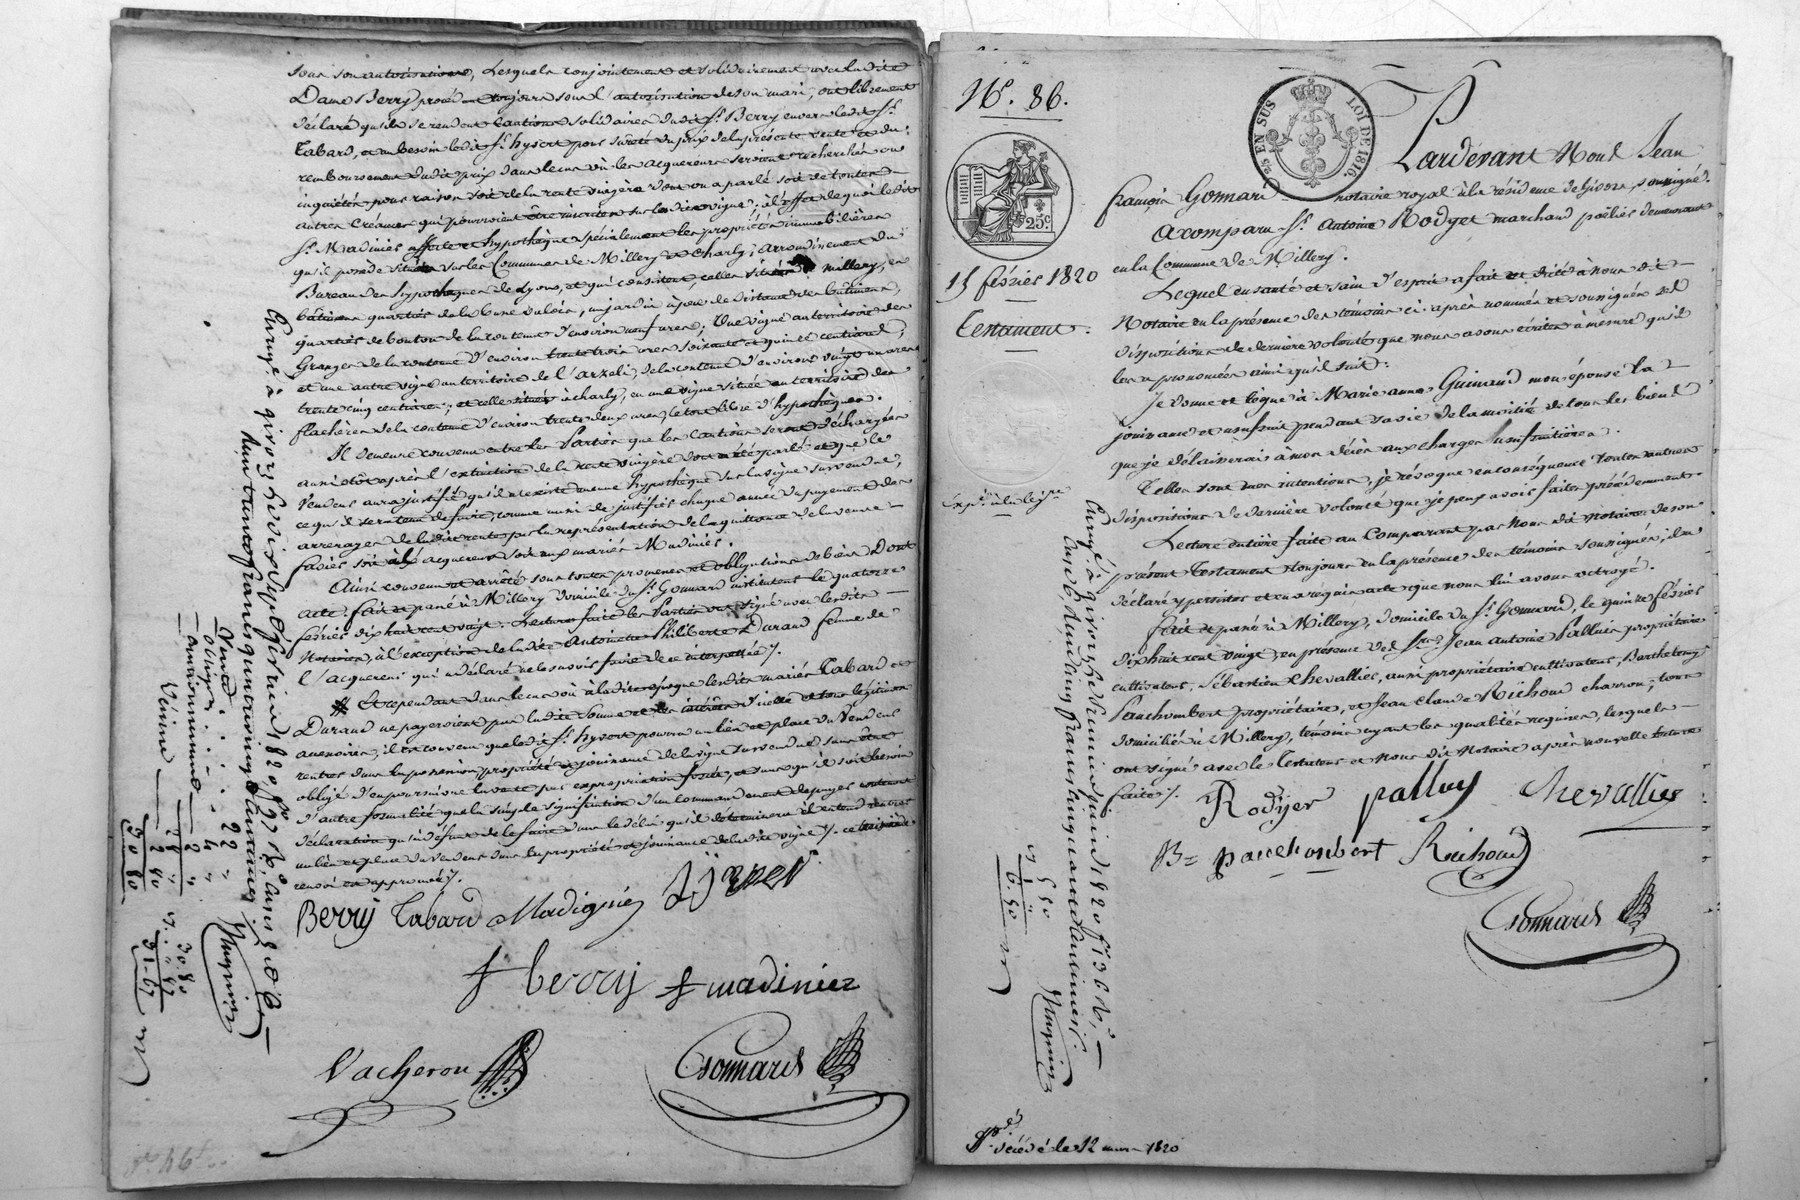 sous son autorisation, lesquels conjointement et solidairement avec ladite
Dame Berry procédant toujours sous l'autorisation de son mari, ont librement
déclaré qu'ils se rendent cautions solidaires dudit Sr. Berry envers ledit Sr.
Tabard, et au besoin ledit Sr. hyvert pour sureté du prix de la présente vente et du
remboursement dudit prix dans le cas où les acquereurs seroient recherchés ou
inquiétés pour raison soit de la rente viagère dont on a parlé soit de toutes
autres créances qui pourroient être inscrites sur ladite vigne; à l'effet de quoi ledit
Sr. Madiniés affecte et hypothèque spécialement les propriétés immobilières
qu'il possède situées sur les Communes de Millery et Charly, arrondissement du
Bureau des hypothèques de Lyon, et qui consistent, celles situées à millery, en
bâtimens quartier de la , un jardin à peu de distance des bâtimens,
quartier de bouton de la contenue d'environ neuf ares; Une vigne au territoire des
Granges de la contenue d'environ trente trois ares soixante et quinze centiares;
et une autre vigne au territoire de l'arzeli, de la contenue d'environ vingt un ares
trente cinq centiares; et celle située à charly, en une vigne située au territoire des
flachères de la contenue d'environ trente deux ares, le tout libre d'hypothèques.
Il demeure convenu entre les Parties que les cautions seront déchargées
aussitôt après l'extinction de la rente viagère dont a été parlé et que le
Vendeur aura justifié qu'il n'existe aucune hypothèque sur la vigne survendue,
ce qu'il sera tenu de faire, comme aussi de justifier chaque année du payement des
arrerages de ladite rente par la représentation de la quittance de la veuve
favier soit à l'acquereur soit aux mariés Madiniés.
Ainsi convenu et arrêté sous toutes promesses et obligations de bien Dont
acte. fait et passé à Millery domicile du Sr. Gonnard instituteur le quatorze
février dix huit cent vingt. Lecture faite les Parties ont signé avec lesdits
Notaires, à l'exception de ladite Antoinette Philiberte Durand femme de
l'acquereur qui a déclaré ne le savoir faire de ce interpellée /.
Et cependant dans le cas où à ladite époque lesdits mariés Tabard et
Durand ne payeroient pas ladite somme et les intérêts d'icelle et tous légitimes
accessoires, il est convenu que ledit Sr. hyvert pourra au lieu et place du Vendeur
rentrer dans la possession, propriété et jouissance de la vigne survendue sans être
obligé d'en poursuivre la vente par expropriation forcée, et sans qu'il soit besoin
d'autre formalité que la simple signification d'un commandement de payer contenant
déclaration qu'à défaut de le faire dans le délai qu'il determinera il entend rentrer
au lieu et place du vendeur dans la propriété et jouissance de ladite vigne /. ce
renvoi est approuvé /.
Berry Tabard Madignié
f berry f madinier
Vacheron Gonnard
Nº. 86.
25 EN SUS LOI DE 1816.
25c
15 février 1820
Testament.
Pardevant Nous Jean
françois Gonnard notaire royal à la résidence de Givors, soussigné.
A comparu Sr. Antoine Rodget marchand poëlier demeurant
en la Commune de Millery.
Lequel en santé et sain d'esprit a fait et dicté à nous dit
Notaire en la présence des témoins ci-après nommés et soussignés ses
dispositions de dernière volonté que nous avons écrites à mesure qu'il
les a prononcées ainsi qu'il suit:
Je donne et lègue à Marie anne Guinand mon épouse la
jouissance et usufruit pendant sa vie de la moitié de tous les biens
que je délaisserai à mon décès aux charges usufruitières.
Telles sont mes intentions, je révoque en conséquence toutes autres
dispositions de dernière volonté que je peux avoir faites précédemment.
Lecture entière faite au Comparant par Nous dit Notaire de son
présent Testament toujours en la présence des témoins soussignés, il a
déclaré y persister et en a réquis acte que nous lui avons octroyé.
fait et passé à Millery, domicile du Sr. Gonnard, le quinze février
dix huit cent vingt, en présence des Srs. Jean antoine Palluis propriétaire
cultivateur, Sébastien Chevallier, aussi propriétaire cultivateur, Barthelemy
Pauchombert propriétaire, et Jean Claude Richoud charron, tous
domiciliés à Millery, témoins ayant les qualités requises, lesquels
ont signé avec le Testateur et Nous dit Notaire après nouvelle lecture
faite /.
Rodjer palluy Chevallier
Bc pauchonbert Richoud
Gonnard
décédé le 12 mars 1820